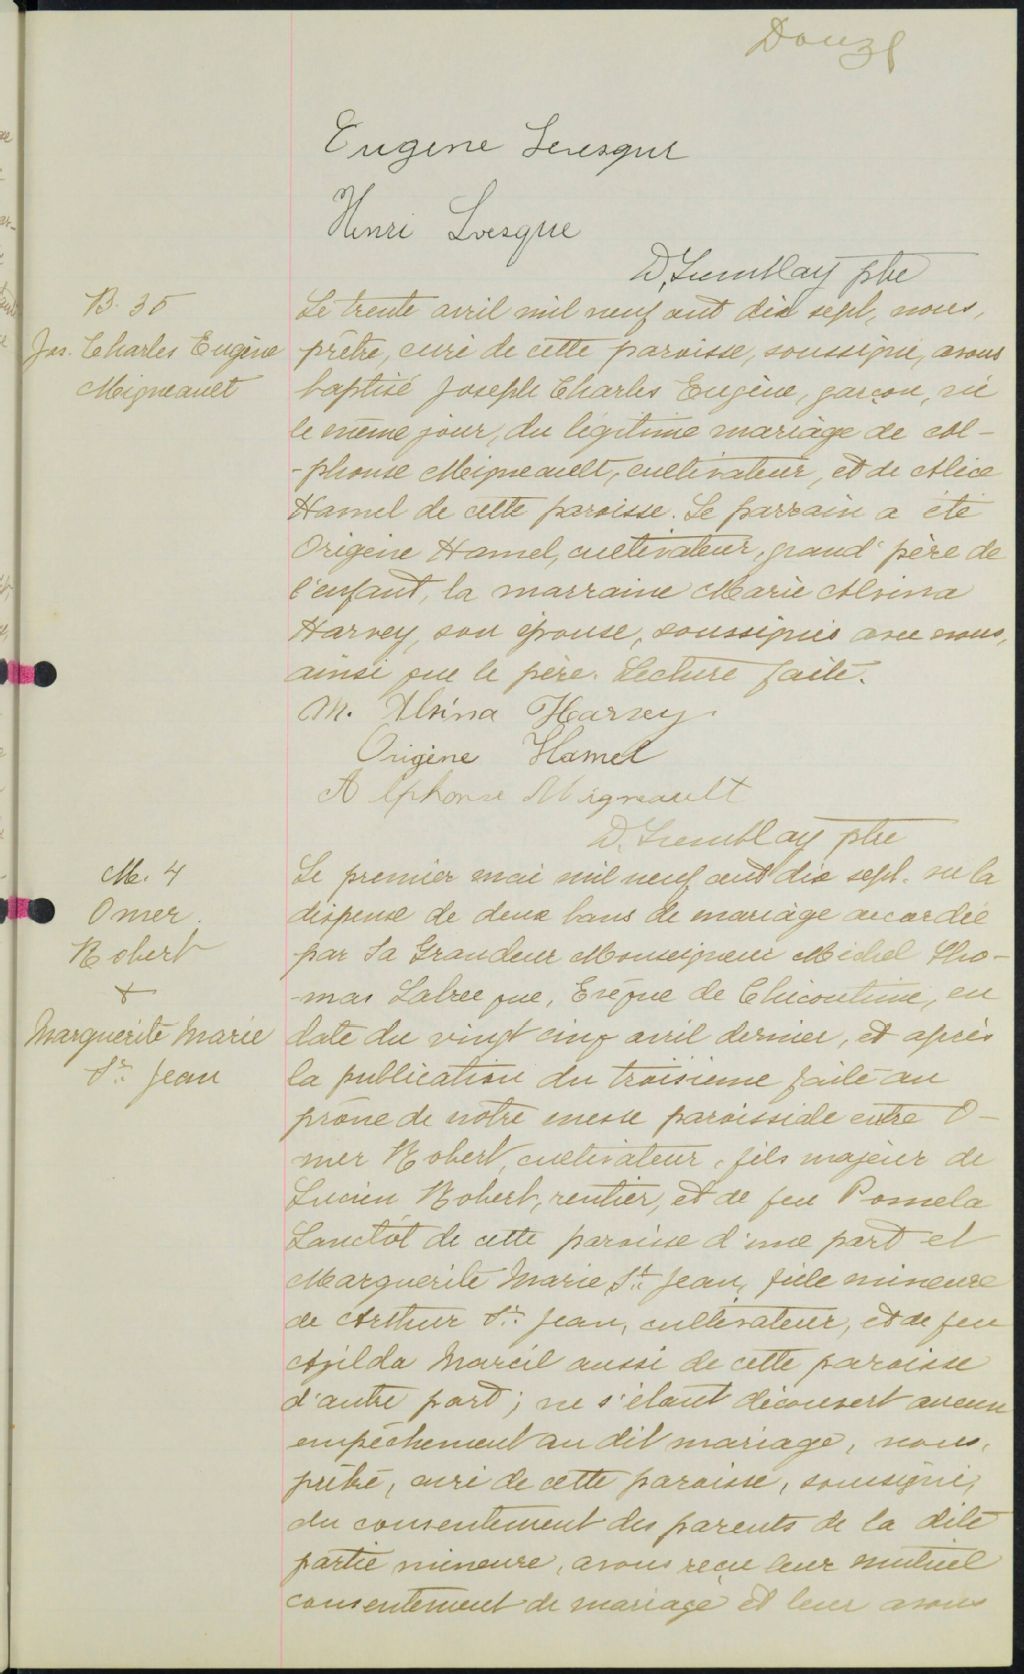 Douze
Eugene Levesque
Henri Lvesque
D. Tremblay ptre
B. 35
Jos. Charles Eugène
Migneault
Le trente avril mil neuf cent dix sept, nous,
prêtre, curé de cette paroisse, soussigné, avons
baptisé Joseph Charles Eugène, garçon, né
le même jour, du légitime mariage de Al-
-phonse Migneault, cultivateur, et de Alice
Hamel de cette paroisse. Le parrain a été
Origène Hamel, cultivateur, grand' père de
l'enfant, la marraine Marie Alvina
Harvey, son épouse, soussignés avec nous,
ainsi que le père. Lecture faite.
M. Alvina Harvey
Origène Hamel
Alphonse Migneault
D. Tremblay ptre
M. 4
Omer
Robert
+
Marguerite Marie
St. Jean
Le premier mai mil neuf cent dix sept. vu la
dispense de deux bans de mariage accordée
par Sa Grandeur Monseigneur Michel Tho-
-mas Labrecque, Evêque de Chicoutimi, en
date du vingt cinq avril dernier, et après
la publication du troisième faite au
prône de notre messe paroissiale entre O-
mer Robert, cultivateur, fils majeur de
Lucien Robert, rentier, et de feu Pomela
Lanctôt de cette paroisse d'une part et
Marguerite Marie St. Jean, fille mineure
de Arthur St. Jean, cultivateur, et de feu
Azilda Marcil aussi de cette paroisse
d'autre part; ne s'étant découvert aucun
empêchement au dit mariage, nous,
prêtre, curé de cette paroisse, soussigné,
du consentement des parents de la dite
partie mineure, avons reçu leur mutuel
consentement de mariage et leur avons